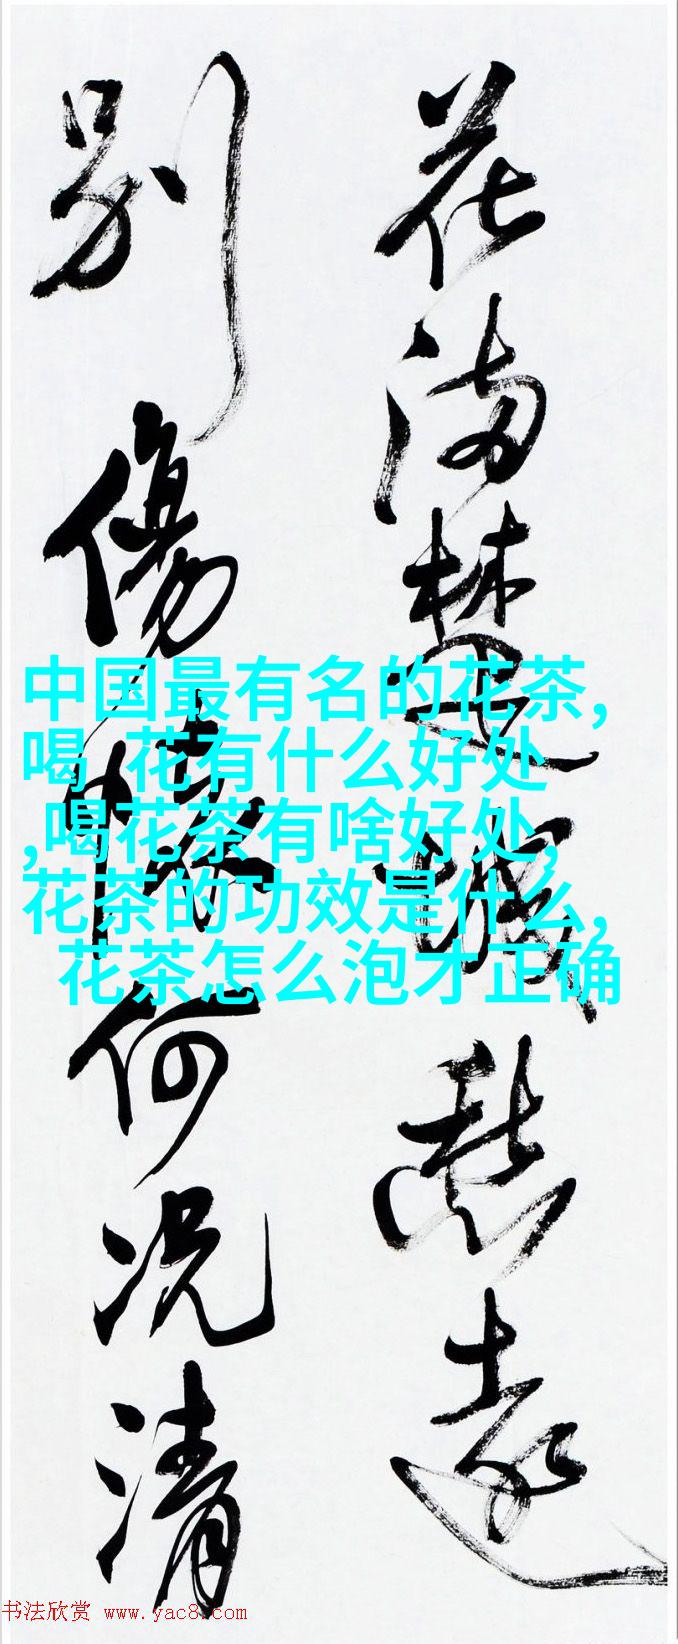 花滿楚城愁遠
別傷懷何况清
中国最有名的花茶,
喝 花有什么好处
,喝花茶有啥好处,
花茶的功效是什么,
花茶怎么泡才正确
书法欣赏 www.yac8.com